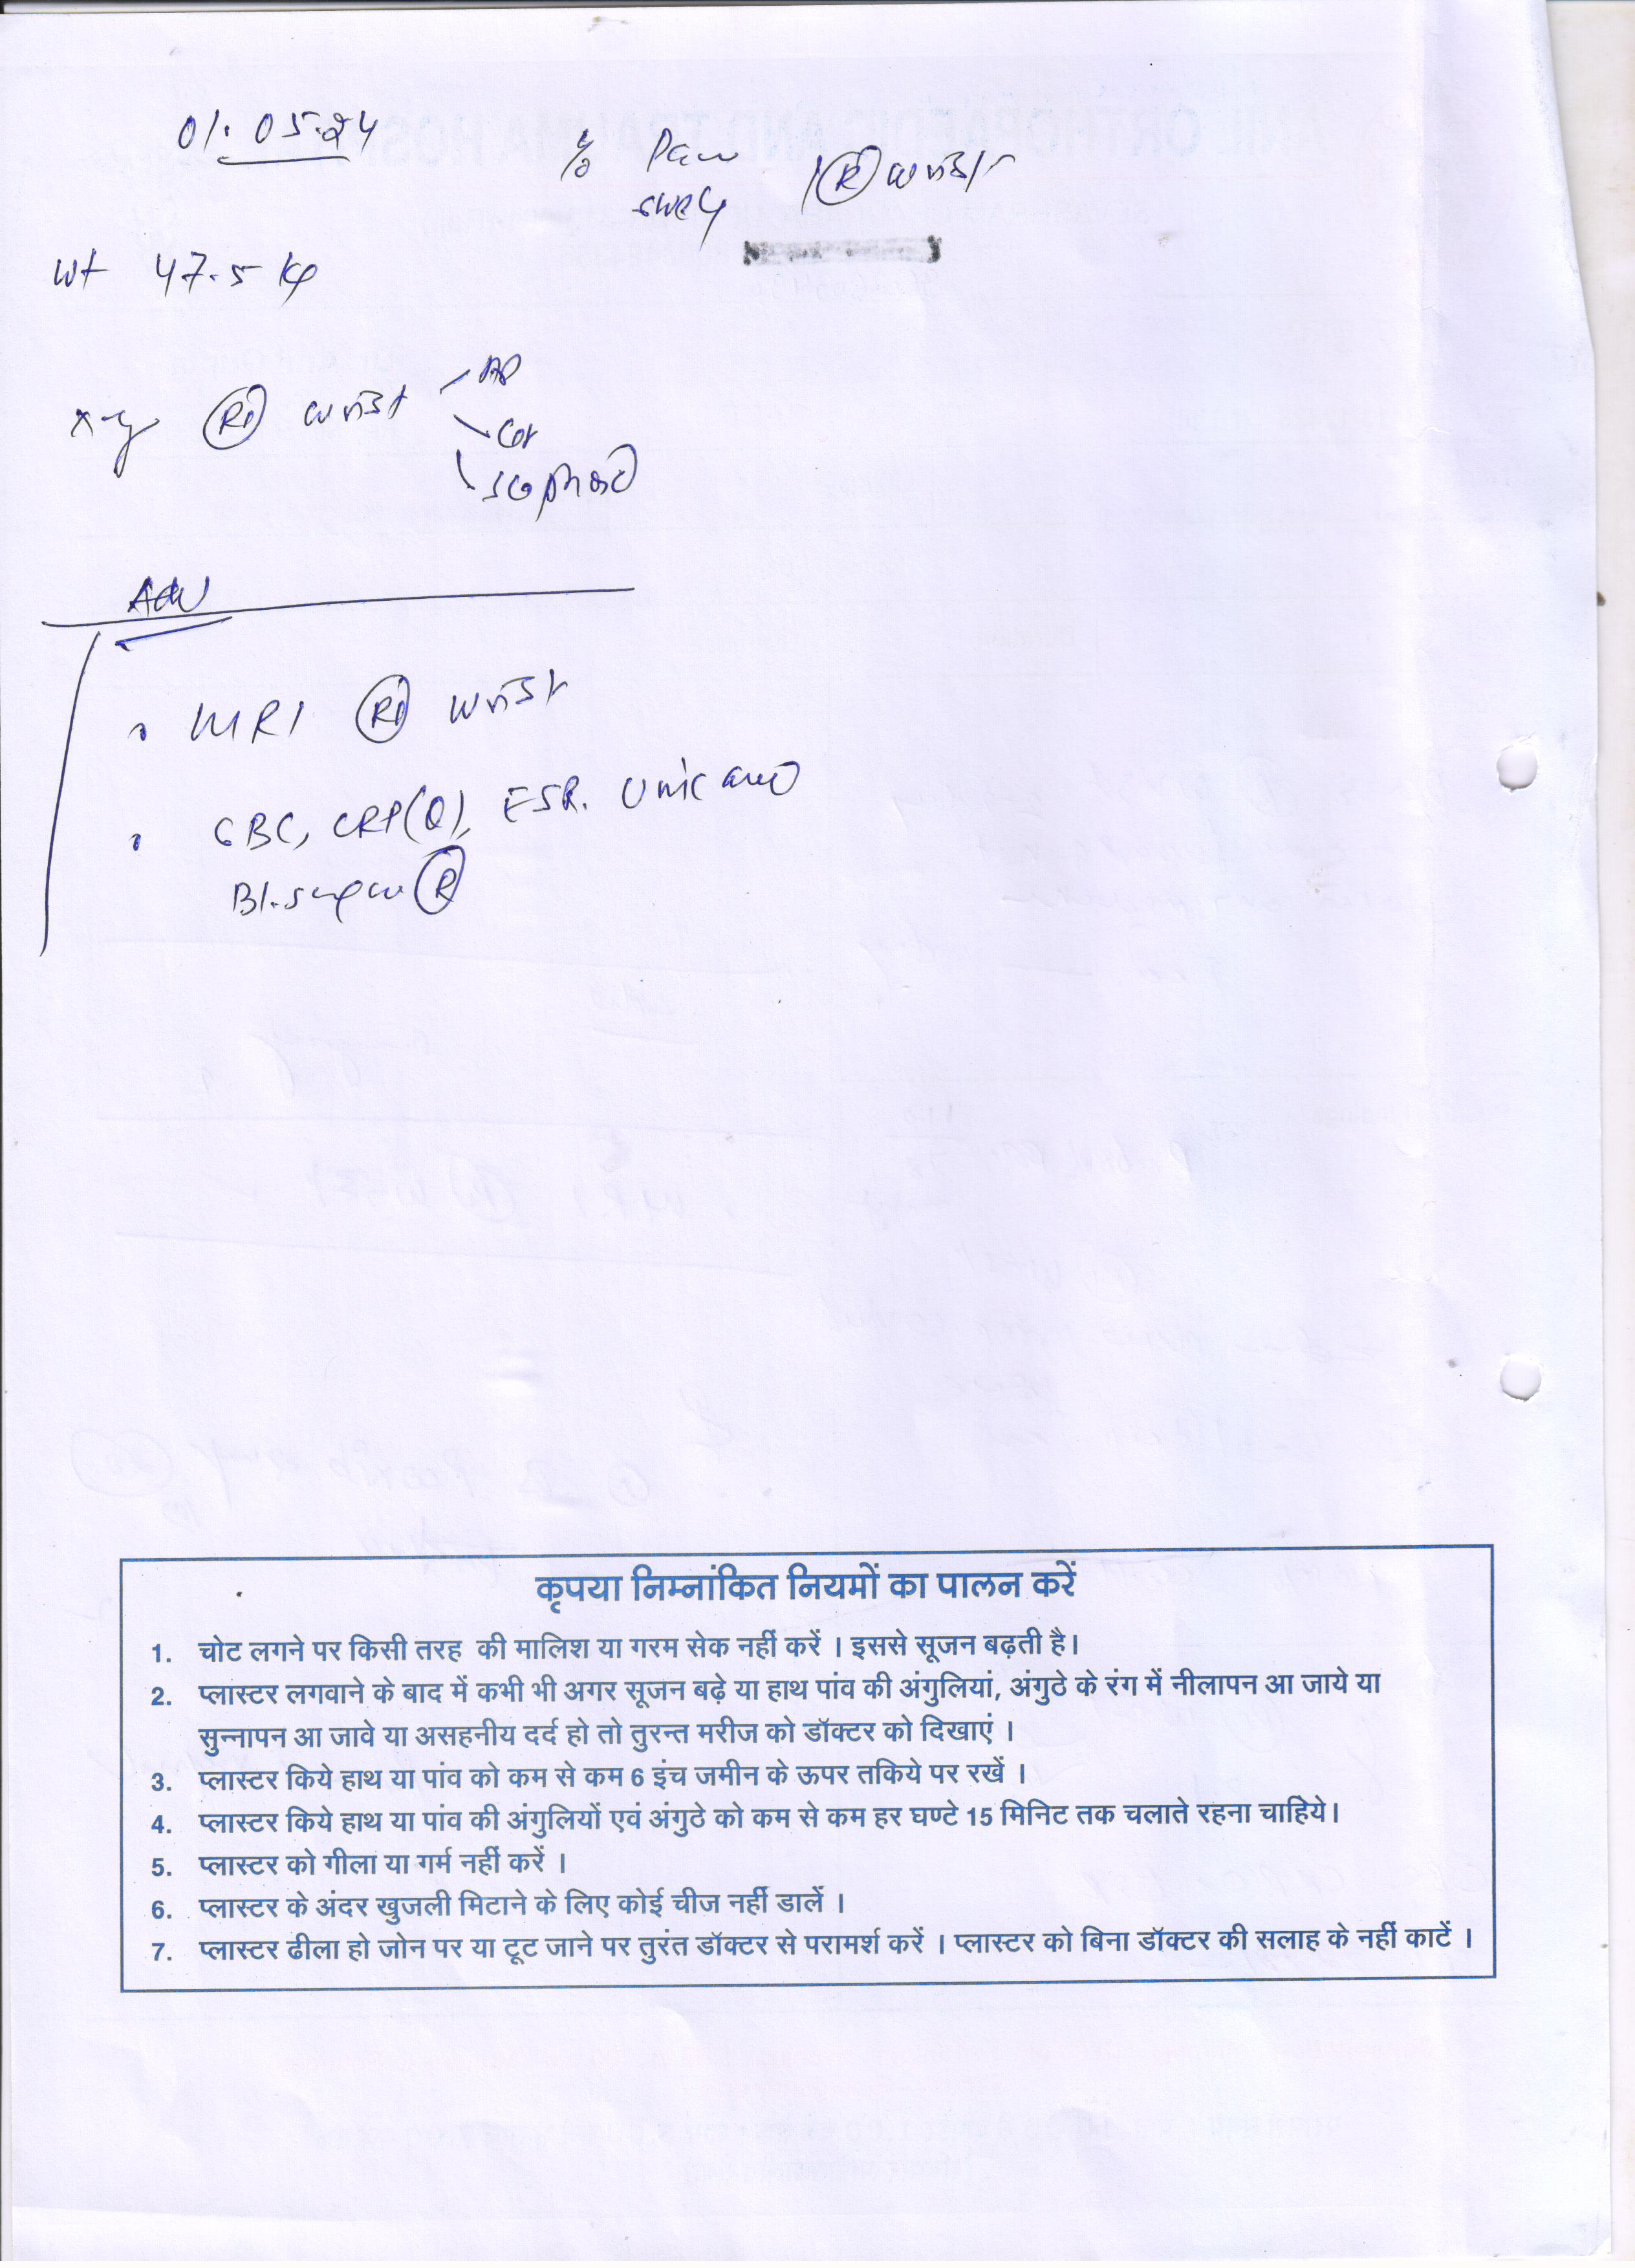 01.05.24
c/o Pain
swelg (R) wrist
wt 47.5 kg
x-ray (Rt) wrist AP
Scaphoid
Adv
MRI (Rt) wrist
CBC, CRP(Q), ESR. Uric acid
Bl. sugar (R)
कृपया निम्नांकित नियमों का पालन करें
1. चोट लगने पर किसी तरह की मालिश या गरम सेक नहीं करें । इससे सूजन बढ़ती है।
2. प्लास्टर लगवाने के बाद में कभी भी अगर सूजन बढ़े या हाथ पांव की अंगुलियां, अंगुठे के रंग में नीलापन आ जाये या
सुन्नापन आ जावे या असहनीय दर्द हो तो तुरन्त मरीज को डॉक्टर को दिखाएं ।
3. प्लास्टर किये हाथ या पांव को कम से कम 6 इंच जमीन के ऊपर तकिये पर रखें ।
4. प्लास्टर किये हाथ या पांव की अंगुलियों एवं अंगुठे को कम से कम हर घण्टे 15 मिनिट तक चलाते रहना चाहिये।
5. प्लास्टर को गीला या गर्म नहीं करें ।
6. प्लास्टर के अंदर खुजली मिटाने के लिए कोई चीज नहीं डालें ।
7. प्लास्टर ढीला हो जोन पर या टूट जाने पर तुरंत डॉक्टर से परामर्श करें । प्लास्टर को बिना डॉक्टर की सलाह के नहीं काटें ।